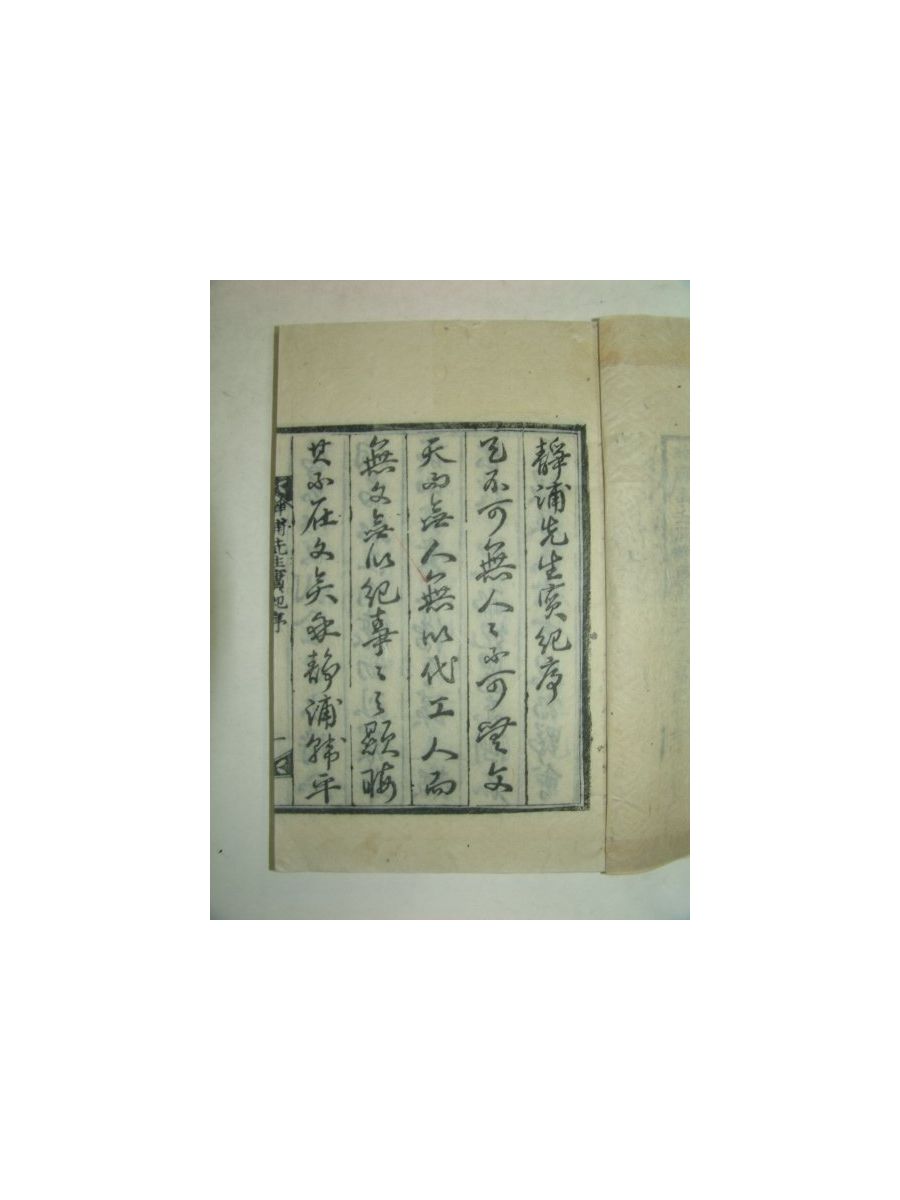 靜浦先生實紀序
天不可無人々不可無文
天而無人無以代工人而
無文無以紀事々之顯晦
其不在文矣乎靜浦韓平
靜浦先生實紀序
一